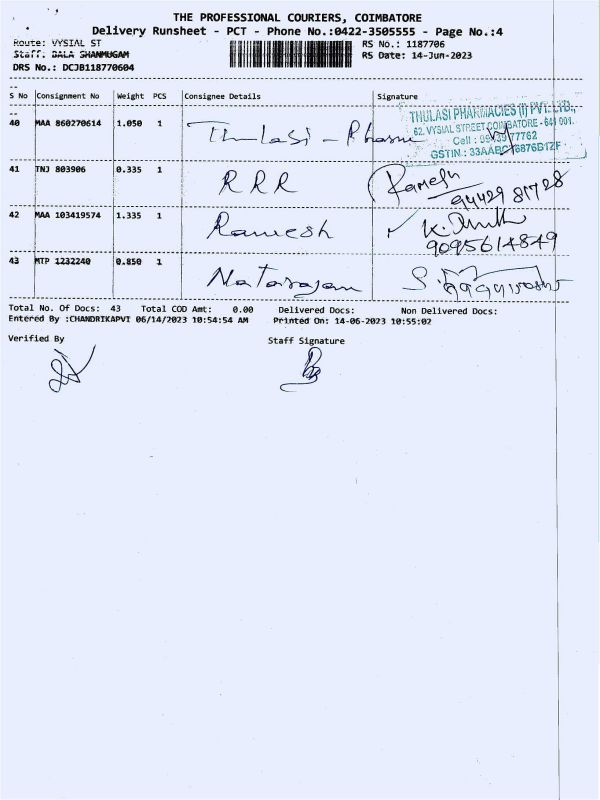 THE PROFESSIONAL COURIERS, COIMBATORE
Delivery Runsheet - PCT - Phone No.:0422-3505555 - Page No.:4
Route: VYSIAL ST RS No.: 1187706
Staff: BALA SHANMUGAM RS Date: 14-Jun-2023
DRS No.: DCJB118770604
S No Consignment No Weight PCS Consignee Details Signature
THULASI PHARMACIES (I) PVT. LTD.,
62, VYSIAL STREET, COIMBATORE - 641 001.
Cell : 77762
GSTIN : 33AABC 6876B1ZF
40 MAA 860270614 1.050 1 Thulasi - Pharm
41 TNJ 803906 0.335 1 RRR Ramesh
94429 81728
42 MAA 103419574 1.335 1 Ramesh K.
9095614849
43 MTP 1232240 0.850 1 Natarajan S.
Total No. Of Docs: 43 Total COD Amt: 0.00 Delivered Docs: Non Delivered Docs:
Entered By :CHANDRIKAPVT 06/14/2023 10:54:54 AM Printed On: 14-06-2023 10:55:02
Verified By Staff Signature